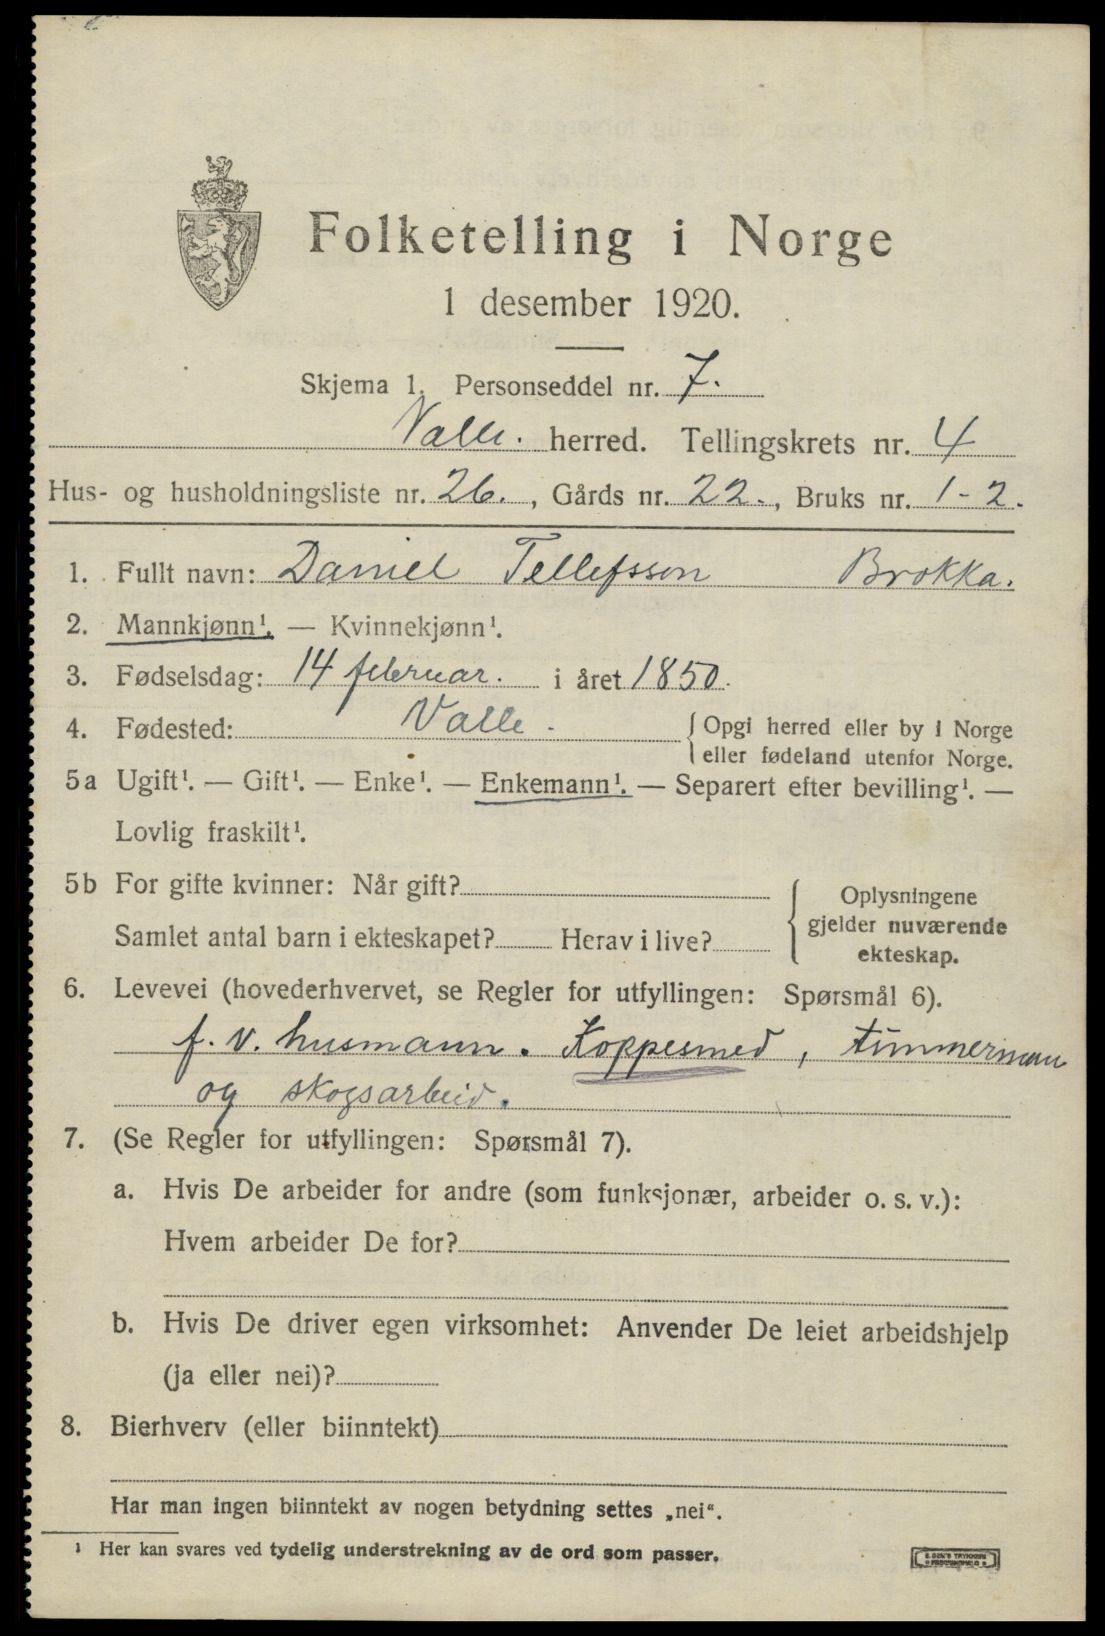 Folketelling i Norge
1 desember 1920.
Skjema 1. Personseddel nr. 7.
Valle. herred. Tellingskrets nr. 4
Hus- og husholdningsliste nr. 26., Gårds nr. 22., Bruks nr. 1-2.
1. Fullt navn: Daniel Tellefsson Brokka.
2. Mannkjønn¹. — Kvinnekjønn¹.
3. Fødselsdag: 14 februar. i året 1850.
4. Fødested: Valle. { Opgi herred eller by i Norge
eller fødeland utenfor Norge.
5a Ugift¹. — Gift¹. — Enke¹. — Enkemann¹. — Separert efter bevilling¹. —
Lovlig fraskilt¹.
5b For gifte kvinner: Når gift?
Samlet antal barn i ekteskapet? Herav i live?
{ Oplysningene
gjelder nuværende
ekteskap.
6. Levevei (hovederhvervet, se Regler for utfyllingen: Spørsmål 6).
f. v. husmann. Koppesmed, timmerman
og skogsarbeid.
7. (Se Regler for utfyllingen: Spørsmål 7).
a. Hvis De arbeider for andre (som funksjonær, arbeider o. s. v.):
Hvem arbeider De for?
b. Hvis De driver egen virksomhet: Anvender De leiet arbeidshjelp
(ja eller nei)?
8. Bierhverv (eller biinntekt)
Har man ingen biinntekt av nogen betydning settes „nei“.
¹ Her kan svares ved tydelig understrekning av de ord som passer.